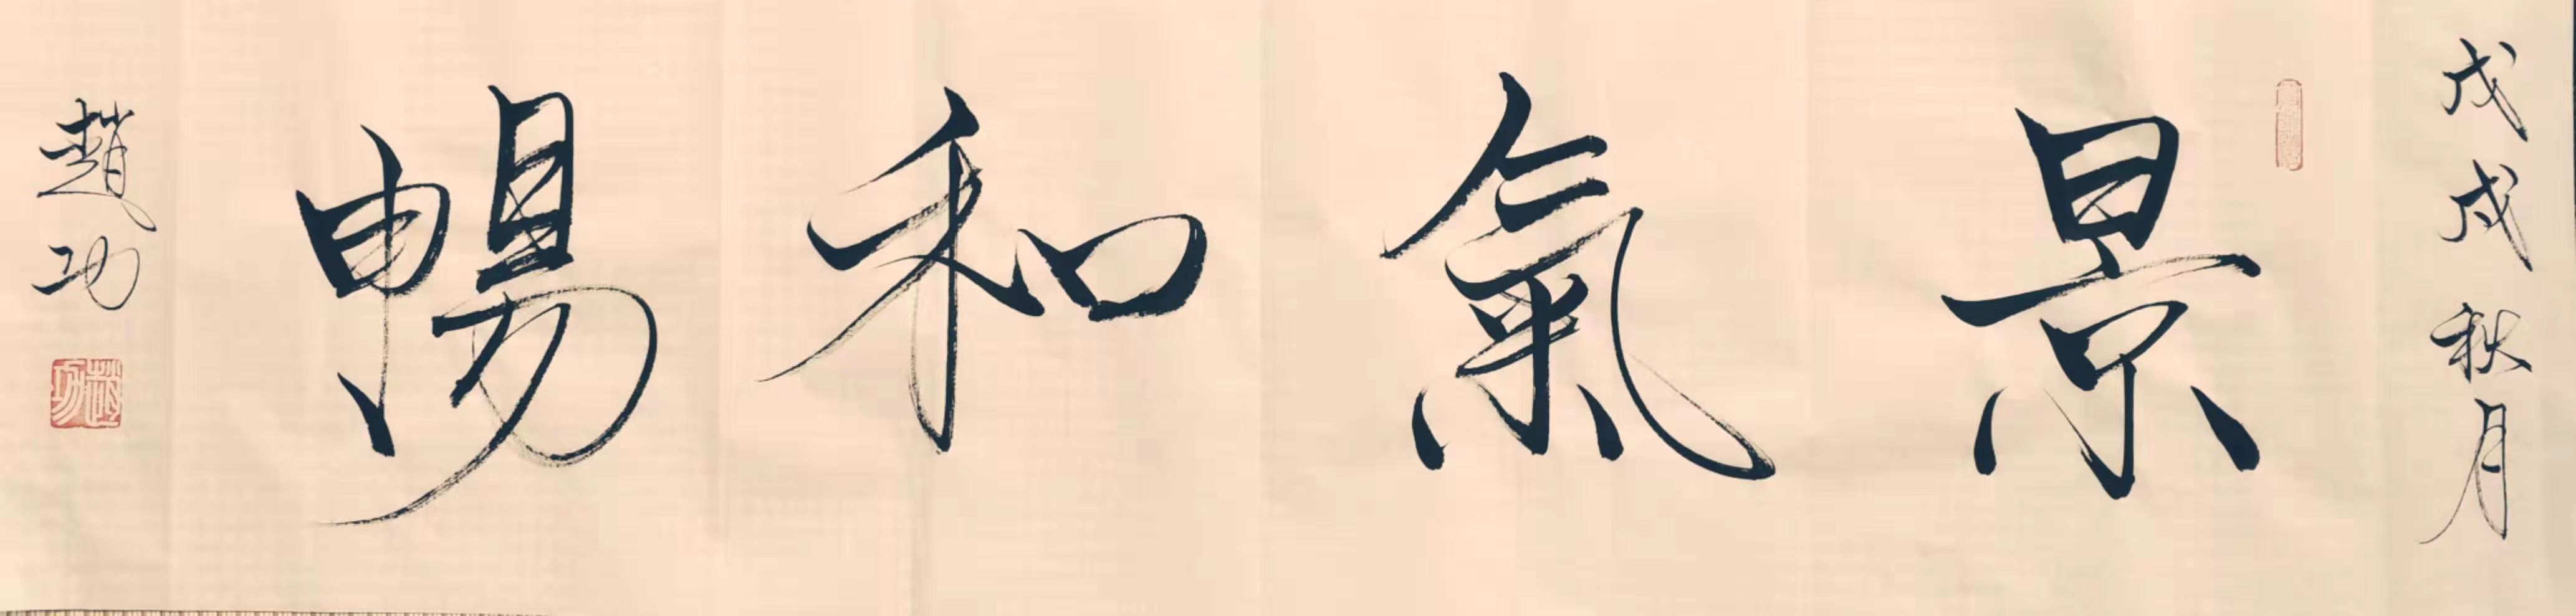 戊戌秋月
景氣和暢
趙功
趙功